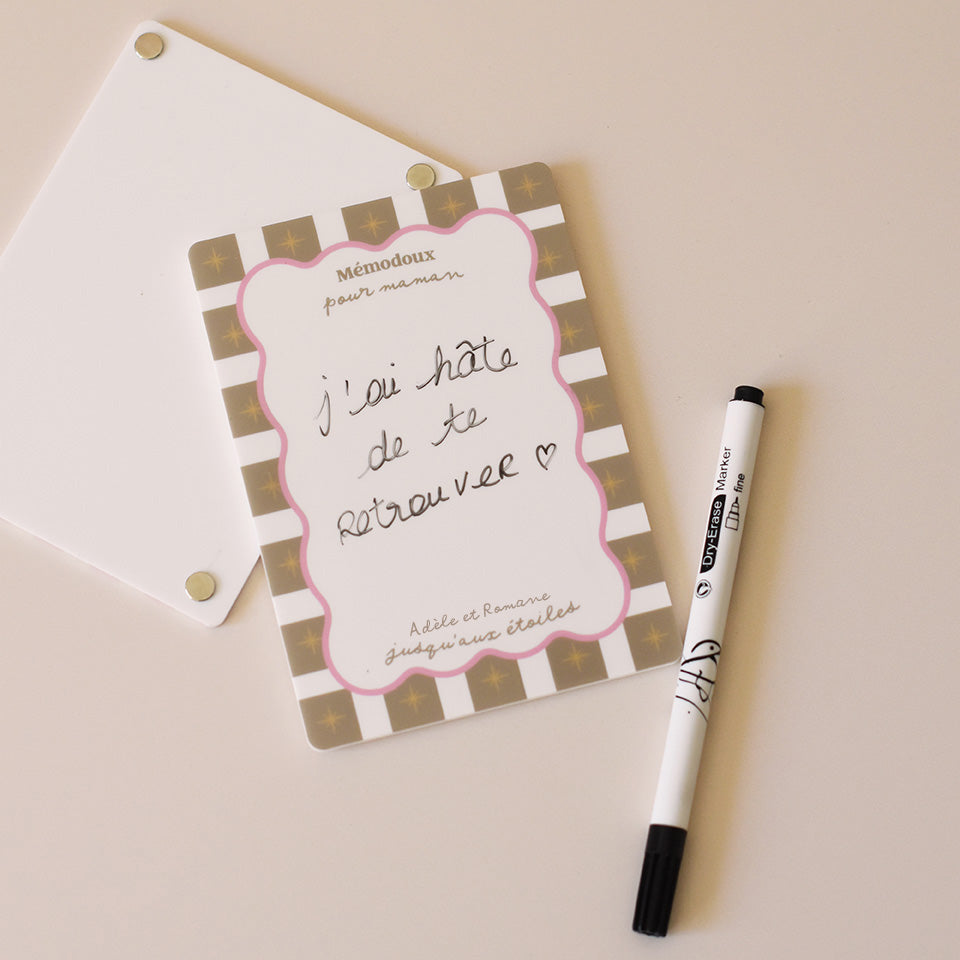 Mémodoux
pour maman
j'ai hâte
de te
RetrouveR ♡
Adèle et Romane
jusqu'aux étoiles
Dry-Erase Marker
fine